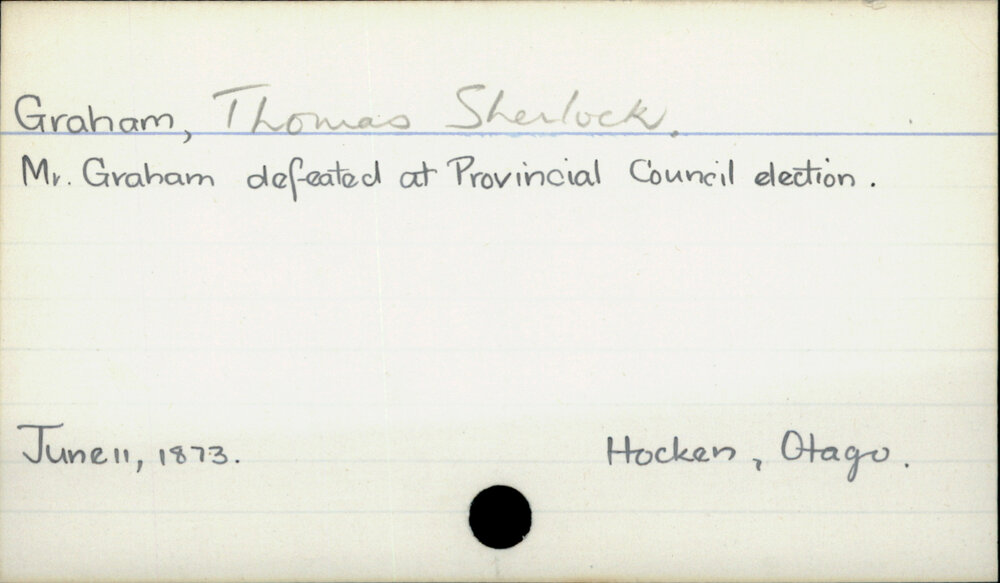 Graham, Thomas Sherlock.
Mr. Graham defeated at Provincial Council election.
June 11, 1873.
Hocken, Otago.